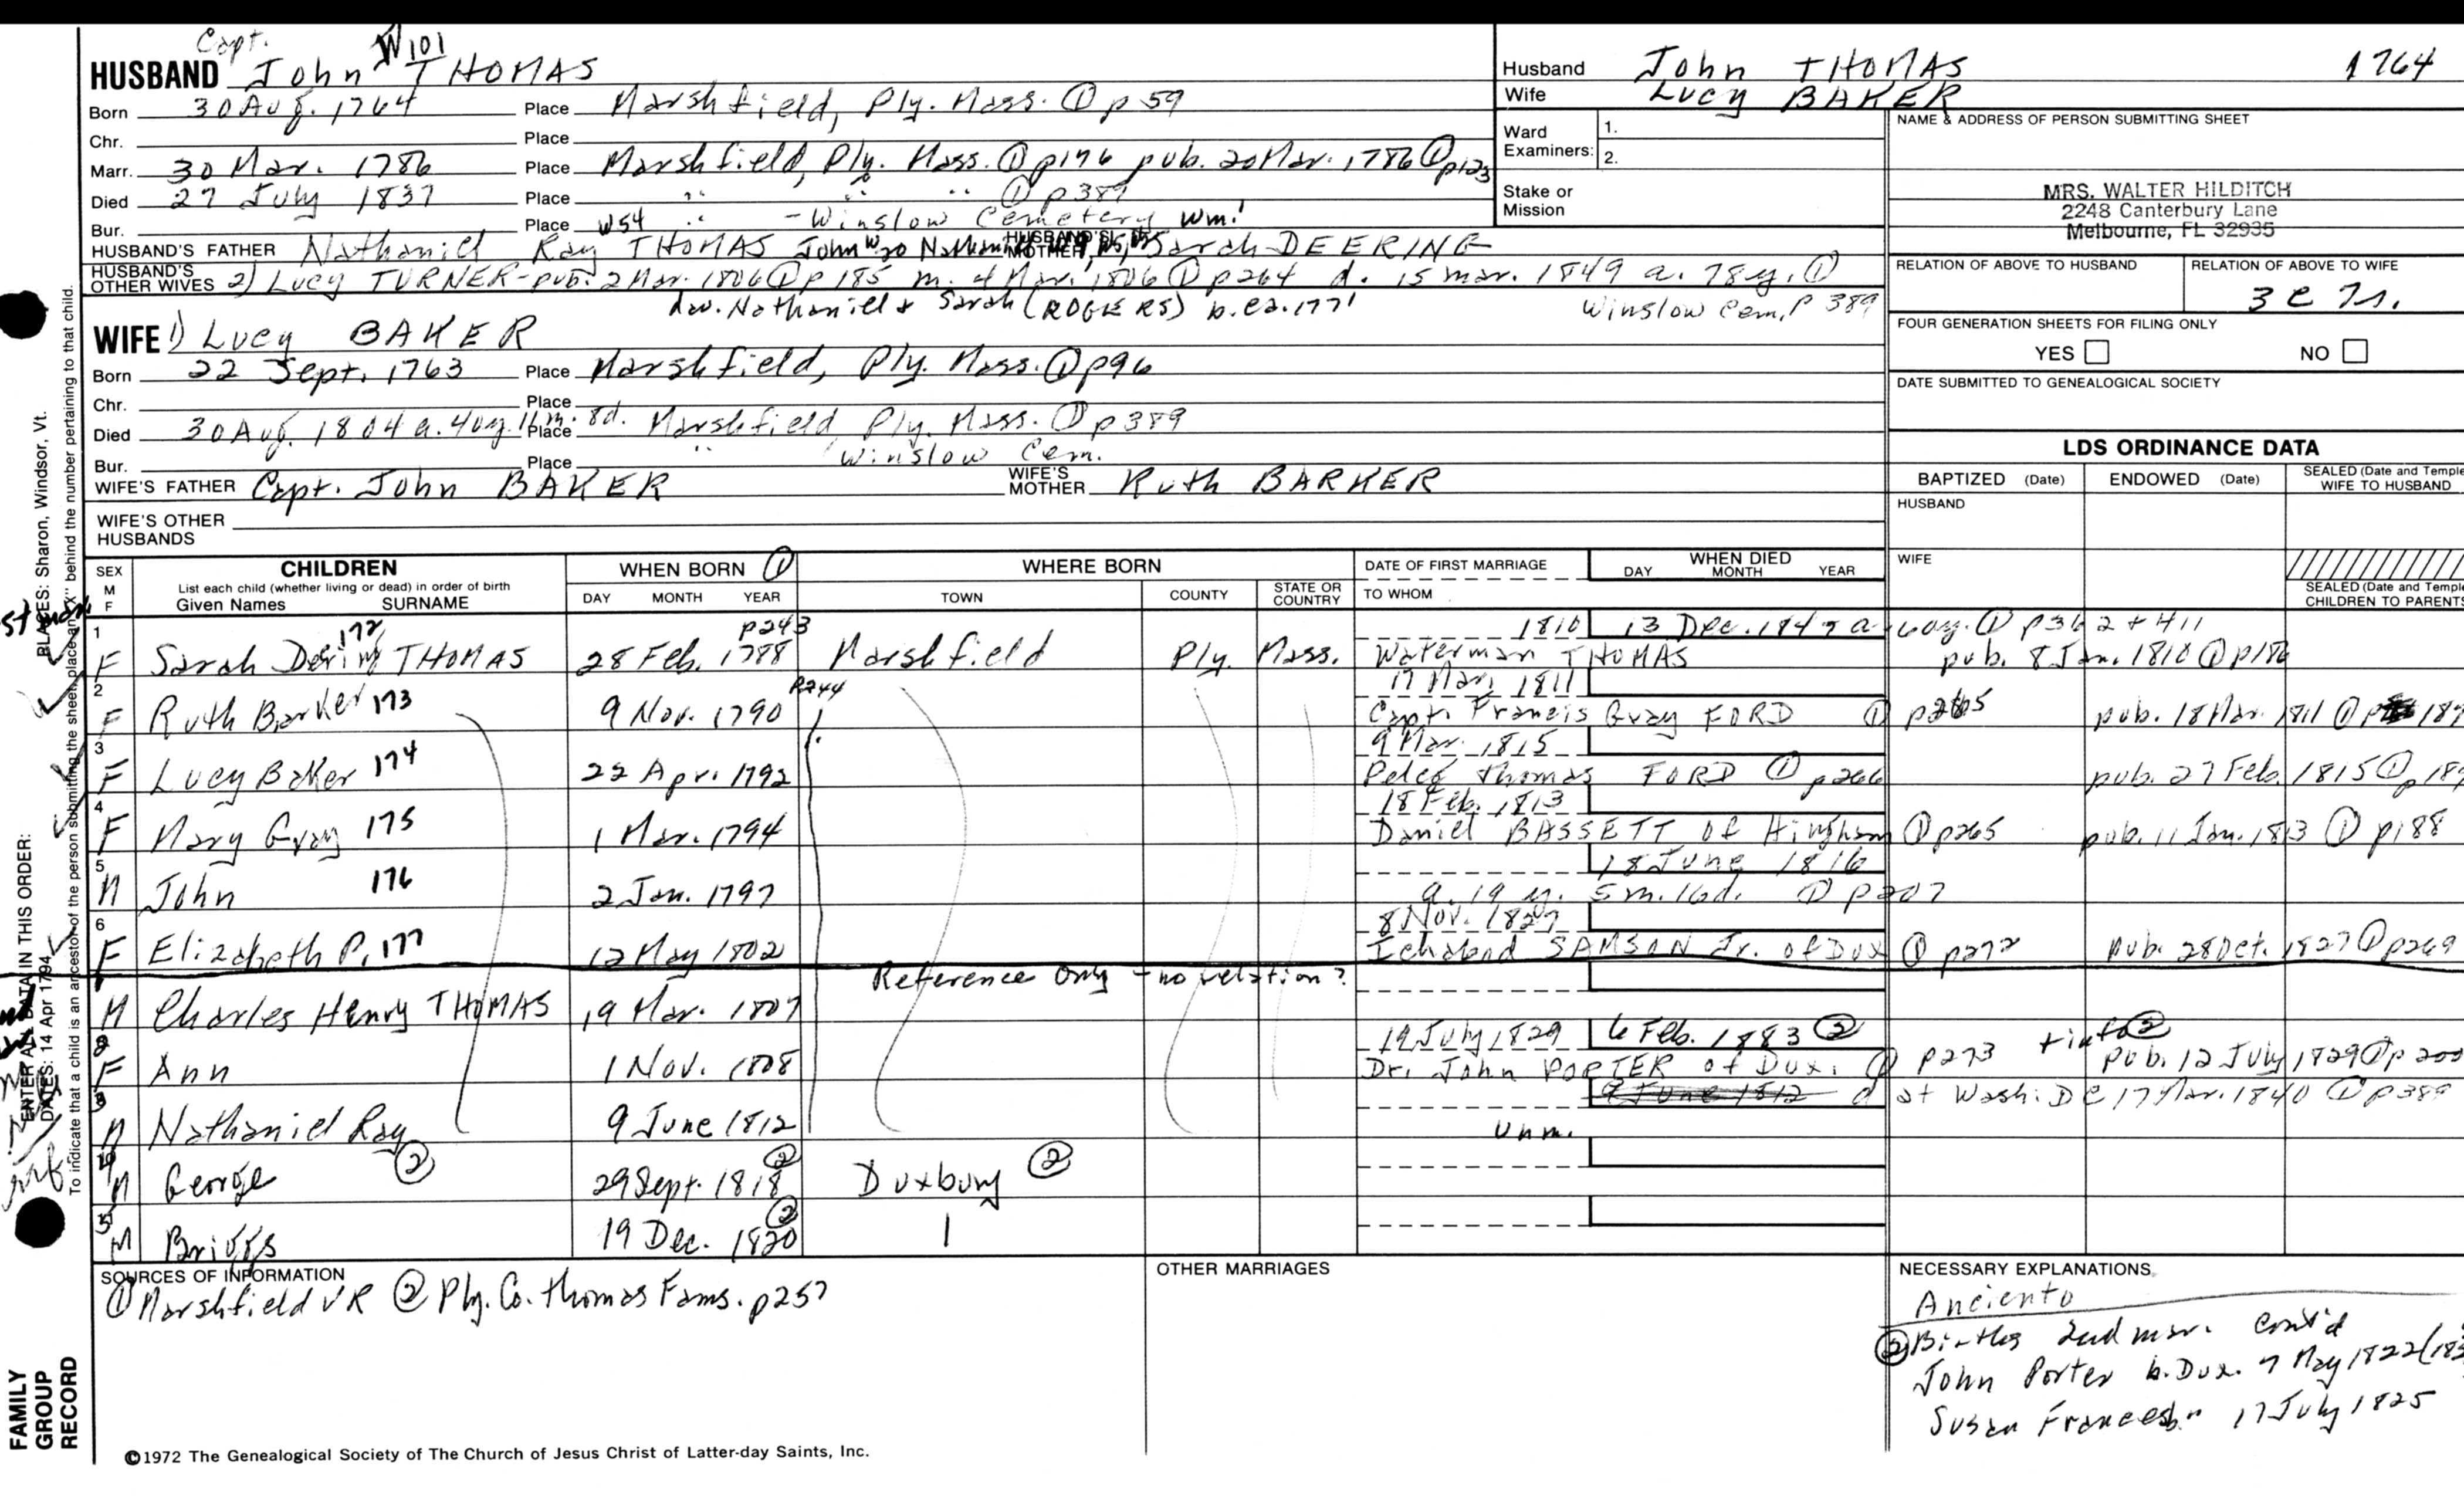 Capt. W101
HUSBAND John THOMAS
Born 30 Aug. 1764 Place Marshfield, Ply. Mass. ① p 59
Chr. Place
Marr. 30 Mar. 1786 Place Marshfield, Ply. Mass. ① p176 pub. 20 Mar. 1786 ① p123
Died 27 July 1837 Place " " " ① p 389
Bur. Place W54 " - Winslow Cemetery Wm.
HUSBAND'S FATHER Nathaniel Ray THOMAS John W20 HUSBAND'S MOTHER Sarah DEERING
HUSBAND'S OTHER WIVES 2) Lucy TURNER - pub. 2 Mar. 1806 ① p 185 m. 4 Mar. 1806 ① p264 d. 15 mar. 1849 a. 78y. ①
dau. Nathaniel & Sarah (ROGERS) b. ca. 1771 Winslow Cem, P 389
WIFE 1) Lucy BAKER
Born 22 Sept. 1763 Place Marshfield, Ply. Mass. ① p96
Chr. Place
Died 30 Aug. 1804 a. 40y. 11m. 8d. Place Marshfield Ply. Mass. ① p389
Bur. Place " Winslow Cem.
WIFE'S FATHER Capt. John BAKER WIFE'S MOTHER Ruth BARKER
WIFE'S OTHER HUSBANDS
Husband John THOMAS 1764
Wife Lucy BAKER
Ward Examiners: 1.
2.
Stake or Mission
NAME & ADDRESS OF PERSON SUBMITTING SHEET
MRS. WALTER HILDITCH
2248 Canterbury Lane
Melbourne, FL 32935
RELATION OF ABOVE TO HUSBAND RELATION OF ABOVE TO WIFE
FOUR GENERATION SHEETS FOR FILING ONLY
YES NO
DATE SUBMITTED TO GENEALOGICAL SOCIETY
LDS ORDINANCE DATA
BAPTIZED (Date) ENDOWED (Date) SEALED (Date and Temple
WIFE TO HUSBAND
HUSBAND
WIFE
SEALED (Date and Temple
CHILDREN TO PARENTS
SEX M F CHILDREN
List each child (whether living or dead) in order of birth
Given Names SURNAME
WHEN BORN ①
DAY MONTH YEAR
WHERE BORN
TOWN COUNTY STATE OR COUNTRY
DATE OF FIRST MARRIAGE
TO WHOM
WHEN DIED
DAY MONTH YEAR
1 172 p243 1810 13 Dec. 1847 a 60y. ① p362 + 411
F Sarah Dering THOMAS 28 Feb. 1788 Marshfield Ply. Mass. Waterman THOMAS pub. 8 Jan. 1810 ① p186
2 P244 17 Mar. 1811
F Ruth Barker 173 9 Nov. 1790 Capt. Francis Gray FORD ① p265 pub. 18 Mar. 1811 ① 187
3 9 Mar. 1815
F Lucy Baker 174 22 Apr. 1792 Peleg Thomas FORD ① p266 pub. 27 Feb. 1815 ① p 189
4 18 Feb. 1813
F Mary Gray 175 1 Mar. 1794 Daniel BASSETT of Hingham ① p265 pub. 11 Jan. 1813 ① p188
5 18 June 1816
M John 176 2 Jan. 1797 a. 19 y. 5m. 16d. ① p207
6 8 Nov. 1827
F Elizabeth P. 177 12 May 1802 Ichabod SAMSON Jr. of Dux ① p272 pub. 28 Oct. 1827 ① p269
Reference Only - no relation?
M Charles Henry THOMAS 19 Mar. 1807
19 July 1829 6 Feb. 1883 ② + info ②
F Ann 1 Nov. 1808 Dr. John PORTER of Dux. ① p273 pub. 12 July 1829 ① p 200
9 June 1812 d at Wash. DC 17 Mar. 1840 ① p389
M Nathaniel Ray 9 June 1812 unm.
M George ② 29 Sept. 1818 ② Duxbury ②
M Briggs 19 Dec. 1820 ②
SOURCES OF INFORMATION
① Marshfield VR ② Ply. Co. Thomas Fams. p257
OTHER MARRIAGES
NECESSARY EXPLANATIONS
Anciento
② Births 2nd mar. cont'd
John Porter b. Dux. 7 May 1822
Susan Frances b. " 17 July 1825
FAMILY GROUP RECORD
ENTER ALL DATA IN THIS ORDER:
DATES: 14 Apr 1794
PLACES: Sharon, Windsor, Vt.
To indicate that a child is an ancestor of the person submitting the sheet, place an "X" behind the number pertaining to that child.
©1972 The Genealogical Society of The Church of Jesus Christ of Latter-day Saints, Inc.